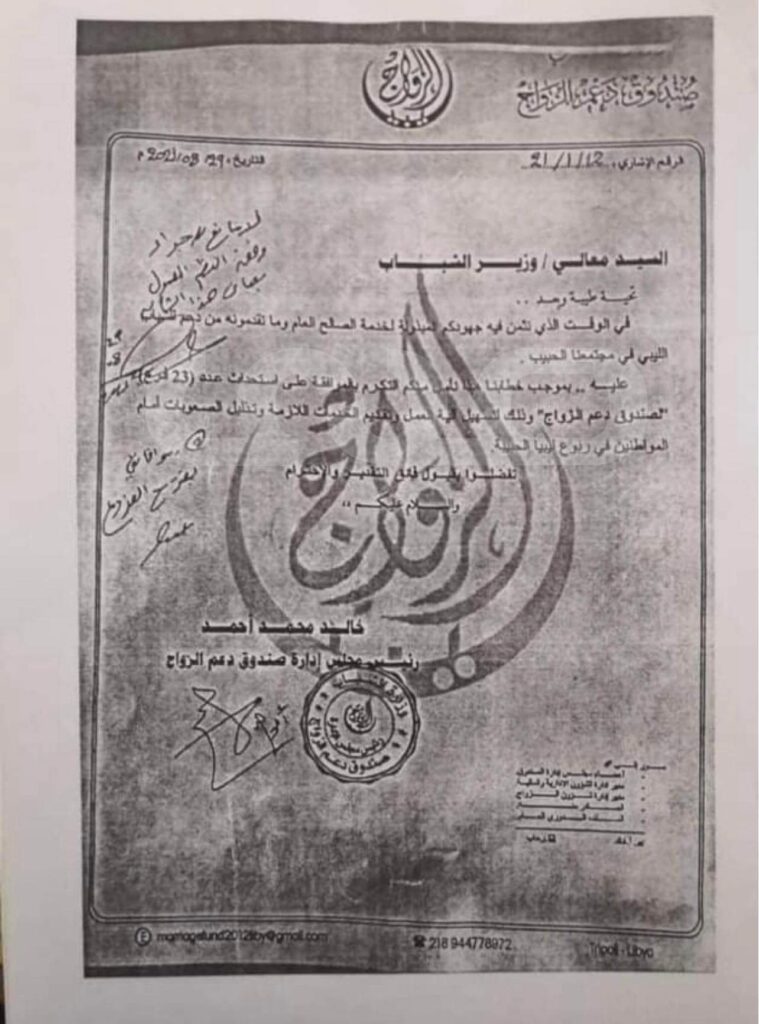 صندوق دعم الزواج
الزواج
الرقم الإشاري: 21/1/12
التاريخ: 29/08/2021 م
السيد معالي / وزير الشباب
تحية طيبة وبعد ..
في الوقت الذي نثمن فيه جهودكم المبذولة لخدمة الصالح العام وما تقدمونه من دعم للشباب
الليبي في مجتمعنا الحبيب .
عليه .. بموجب خطابنا هذا نأمل منكم التكرم بالموافقة على استحداث عدد (23 فرع)
"لصندوق دعم الزواج" وذلك لتسهيل آلية العمل وتقديم الخدمات اللازمة وتذليل الصعوبات أمام
المواطنين في ربوع ليبيا الحبيبة.
تفضلوا بقبول فائق التقدير والاحترام
والسلام عليكم ،،
خالد محمد أحمد
رئيس مجلس إدارة صندوق دعم الزواج
وزارة الشباب
صندوق دعم الزواج
أعضاء مجلس إدارة الصندوق
مدير إدارة الشؤون الإدارية والمالية
مدير إدارة شؤون الزواج
الملف الدوري العام
marriagefund2012liby@gmail.com
218 944778972
Tripoli - Libya